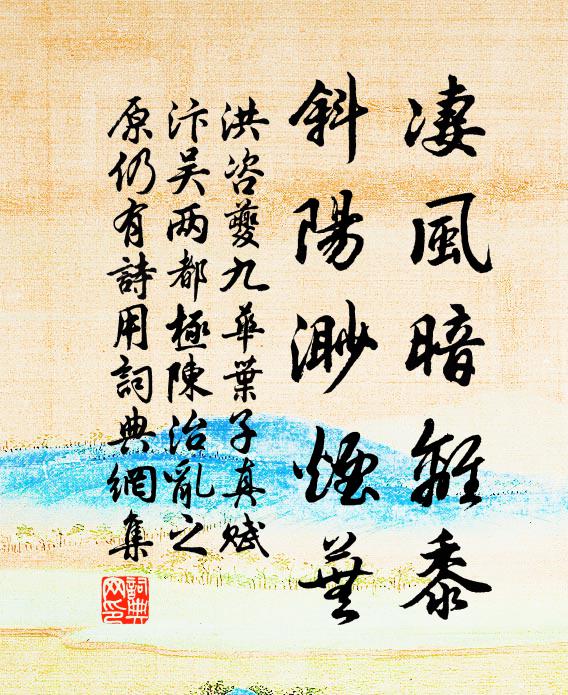 凄風暗離黍
斜陽渺煙蕪
洪咨夔九華葉子真賦
汴吴两都極陳治亂之
原仍有詩用詞典網集
詞典网印